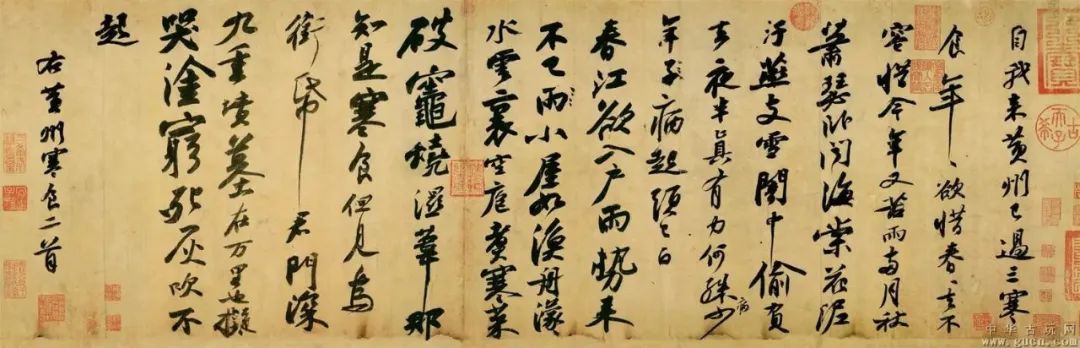 自我来黄州已過三寒
食年〻欲惜春〻去不
容惜今年又苦雨兩月秋
蕭瑟卧聞海棠花泥
汙燕支雪闇中偷負
去夜半真有力何殊病少
年子病起頭已白
春江欲入户雨勢来
不已雨小屋如漁舟濛〻
水雲裏空庖煑寒菜
破竈燒濕葦那
知是寒食但見烏
銜帋君門深
九重墳墓在万里也擬
哭塗窮死灰吹不
起
右黄州寒食二首
古希天子
中华古玩网
www.gucn.com